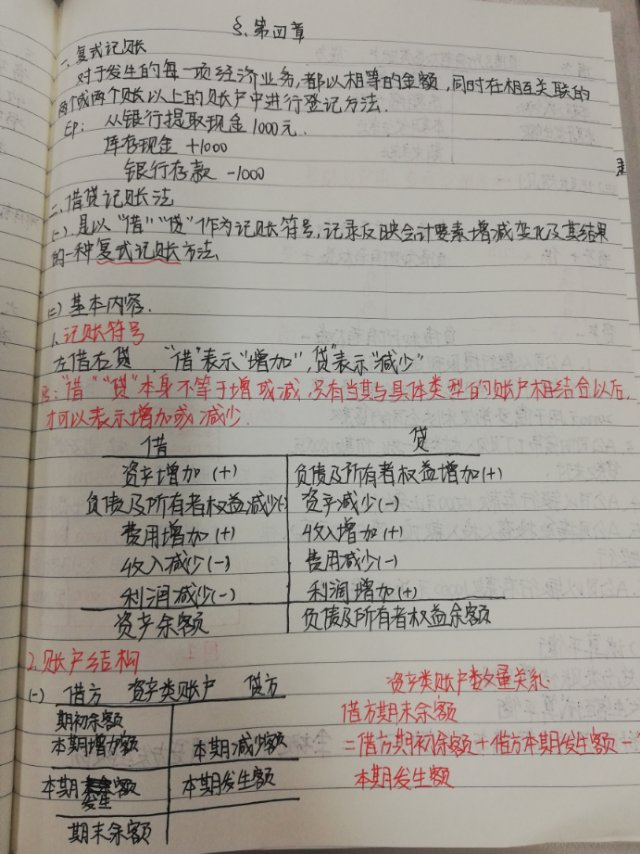 §.第四章
一、复式记账
对于发生的每一项经济业务,都以相等的金额,同时在相互关联的
两个或两个账以上的账户中进行登记方法.
即: 从银行提取现金1000元.
库存现金 +1000
银行存款 -1000
二、借贷记账法
(一).是以“借”“贷”作为记账符号,记录反映会计要素增减变化及其结果
的一种复式记账方法.
(二)基本内容.
1.记账符号
左借右贷 “借”表示“增加”,贷”表示“减少”
“借”“贷”本身不等于增或减,只有当其与具体类型的账户相结合以后,
才可以表示增加或减少.
借 贷
资产增加(+) 负债及所有者权益增加(+)
负债及所有者权益减少(-) 资产减少(-)
费用增加(+) 收入增加(+)
收入减少(-) 费用减少(-)
利润减少(-) 利润增加(+)
资产余额 负债及所有者权益余额
2.账户结构
(一) 借方 资产类账户 贷方
期初余额
本期增加额 本期减少额
本期发生额 本期发生额
期末余额
资产类账户数量关系:
借方期末余额
=借方期初余额+借方本期发生额-
本期发生额